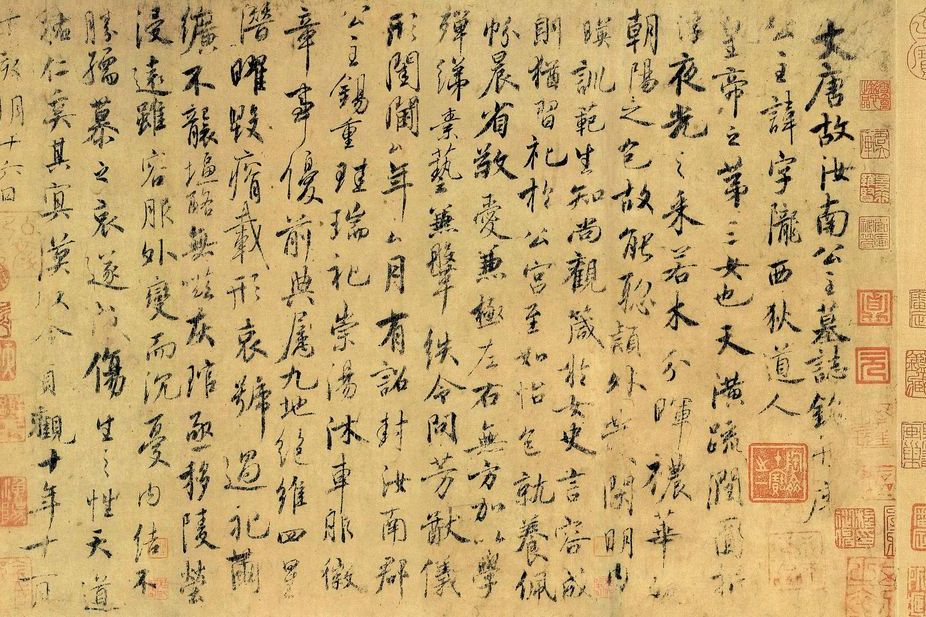 大唐故汝南公主墓誌銘并序
公主諱字隴西狄道人
皇帝之第三女也天潢疏潤圓折
浮夜光之采若木分暉穠華
朝陽之色故能聰穎外發閑明內
暎訓範生知尚觀箴於女史言容成
則猶習礼於公宮至如怡色就養佩
帉晨省敬愛兼極左右無方加以學
殫綈素藝兼鞶紩令問芳猷儀
形閨閫ム年ム月有詔封汝南郡
公主錫重珪瑞礼崇湯沐車服徽
章事優前典屬九地絕維四星
潛曜毀瘠載形哀號過礼繭
纊不襲塩酪無嗞灰琯亟移陵塋
浸遠雖容服外變而沉憂內結不
勝孺慕之哀遂成傷生之性天道
祐仁奚其冥漠以今貞觀十年十一月
丁亥朔十六日